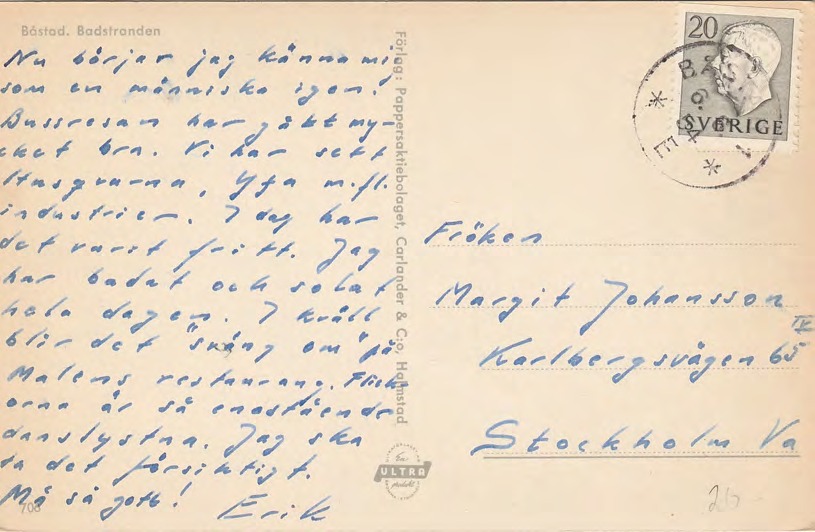 Båstad. Badstranden
Nu börjar jag känna mig
som en människa igen!
Bussresan har gått my-
cket bra. Vi har sett
Husqvarna, Yfa m.fl.
industrier. I dag har
det varit fritt. Jag
har badat och solat
hela dagen. I kväll
blir det "sväng om" på
Malens restaurang. Flick-
orna är så enastående
danslystna. Jag ska
ta det försiktigt.
Må så gott!
Erik
706
Förlag: Pappersaktiebolaget, Carlander & C:o, Halmstad
En
ULTRA
produkt
20
SVERIGE
Fröken
Margit Johansson
Karlbergsvägen 65 IV
Stockholm Va
26